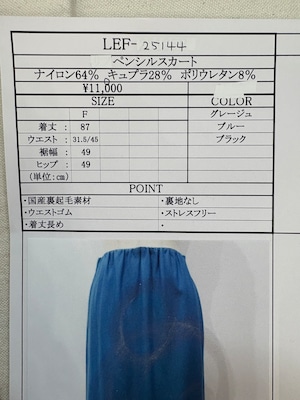 LEF-25144
ペンシルスカート
ナイロン64% キュプラ28% ポリウレタン8%
¥11,000
SIZE
COLOR
F
グレージュ
着丈 : 87
ブルー
ウエスト : 31.5/45
ブラック
裾幅 : 49
ヒップ : 49
(単位:cm)
POINT
・国産裏起毛素材
・裏地なし
・ウエストゴム
・ストレスフリー
・着丈長め
・